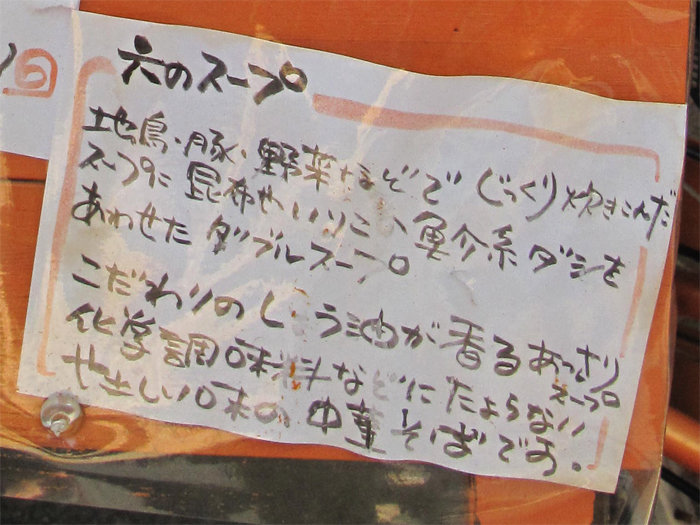 六のスープ
地鳥・豚・野菜などで じっくり炊きこんだ
スープに 昆布や いりこの 魚介系 ダシを
あわせた ダブルスープ
こだわりの しょう油が 香る あっさり
スープ
化学調味料などに たよらない
やさしい味の 中華そばです。